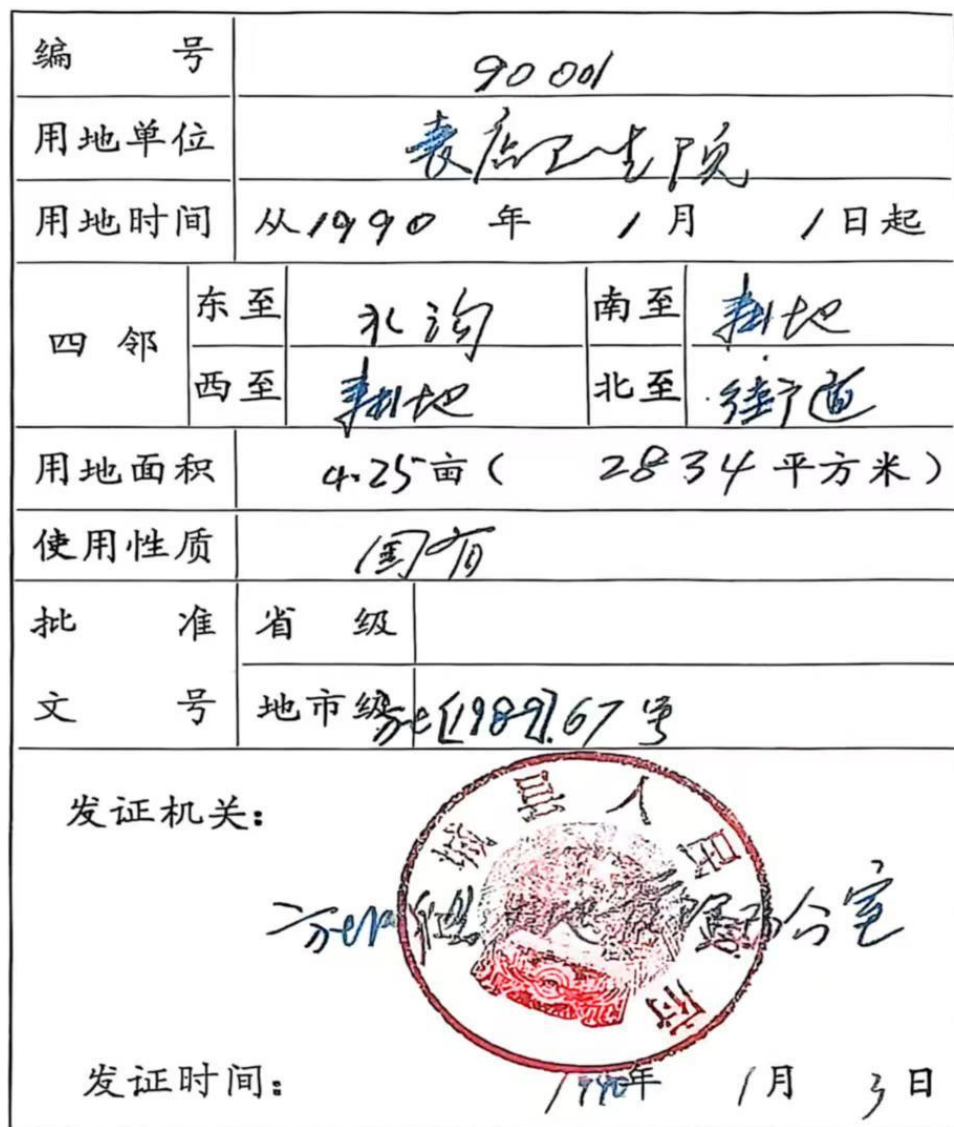 编号 90001
用地单位 袁店卫生院
用地时间 从1990年1月1日起
四邻 东至 水沟 南至 耕地
西至 耕地 北至 街道
用地面积 4.25亩(2834平方米)
使用性质 国有
批准 省级
文号 地市级 [1989].67号
发证机关:
城县人民 府
办公室
发证时间: 1990年1月3日